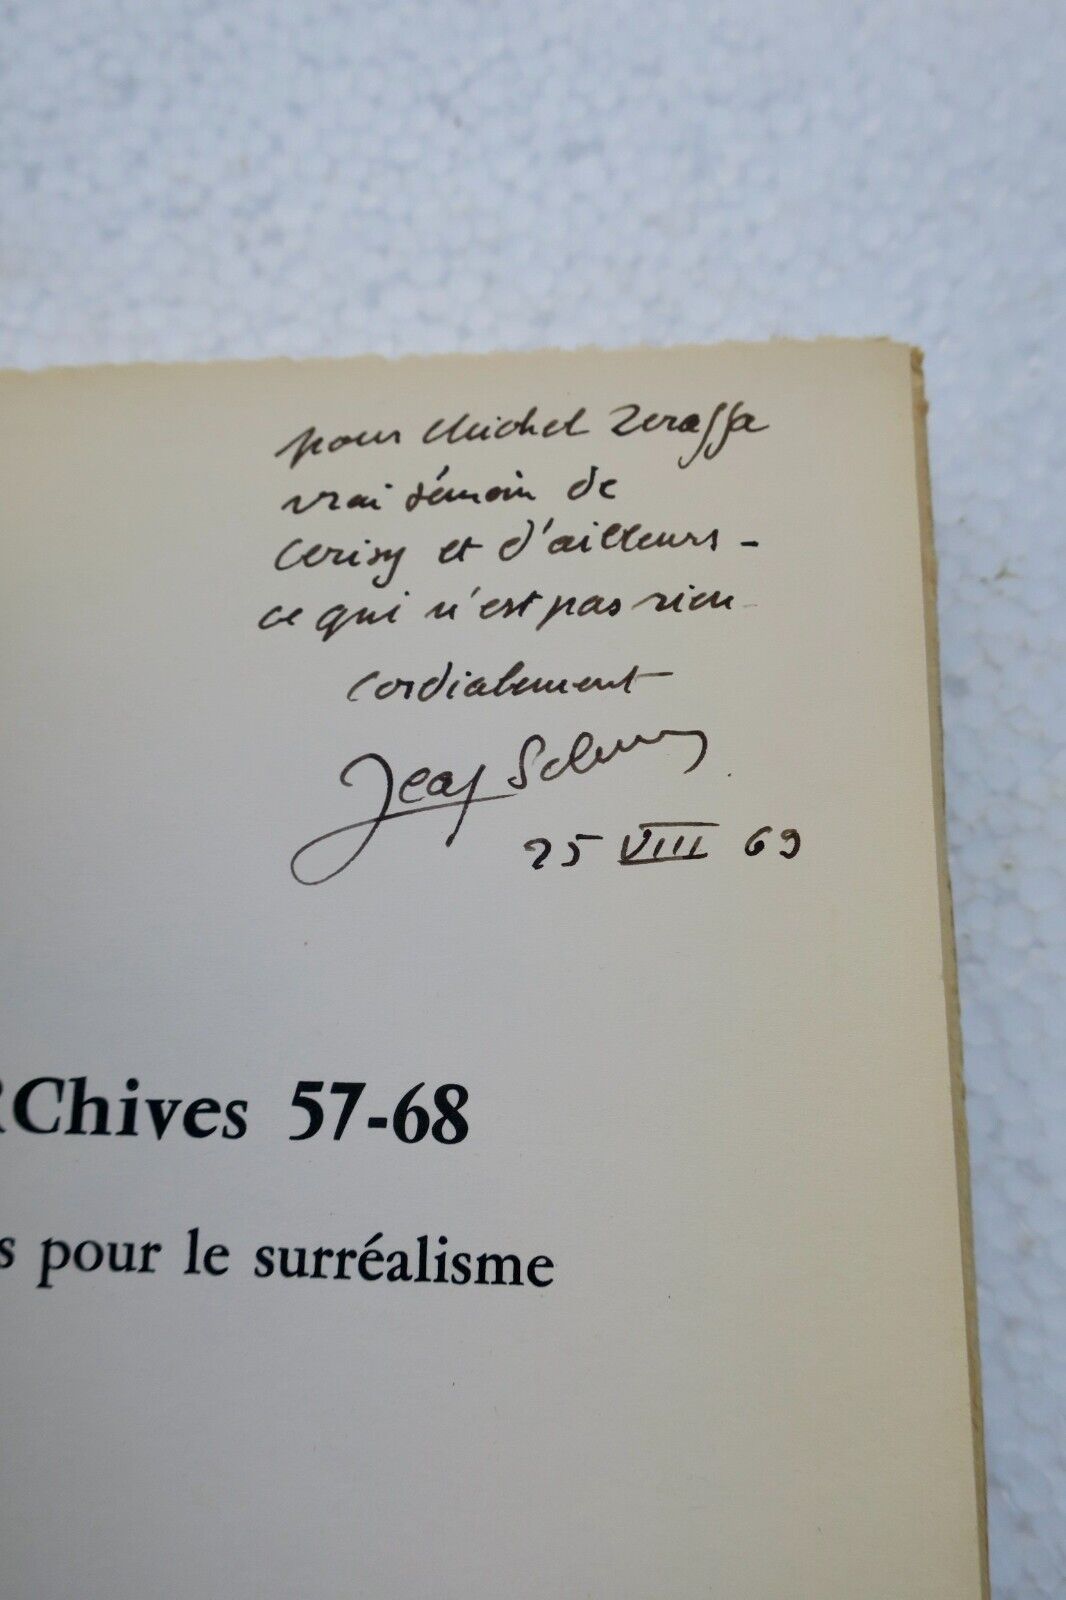 pour Michel Zeraffa
vrai témoin de
Cerisy et d'ailleurs -
ce qui n'est pas rien
cordialement
Jean Schuster
25 VIII 69
RChives 57-68
s pour le surréalisme